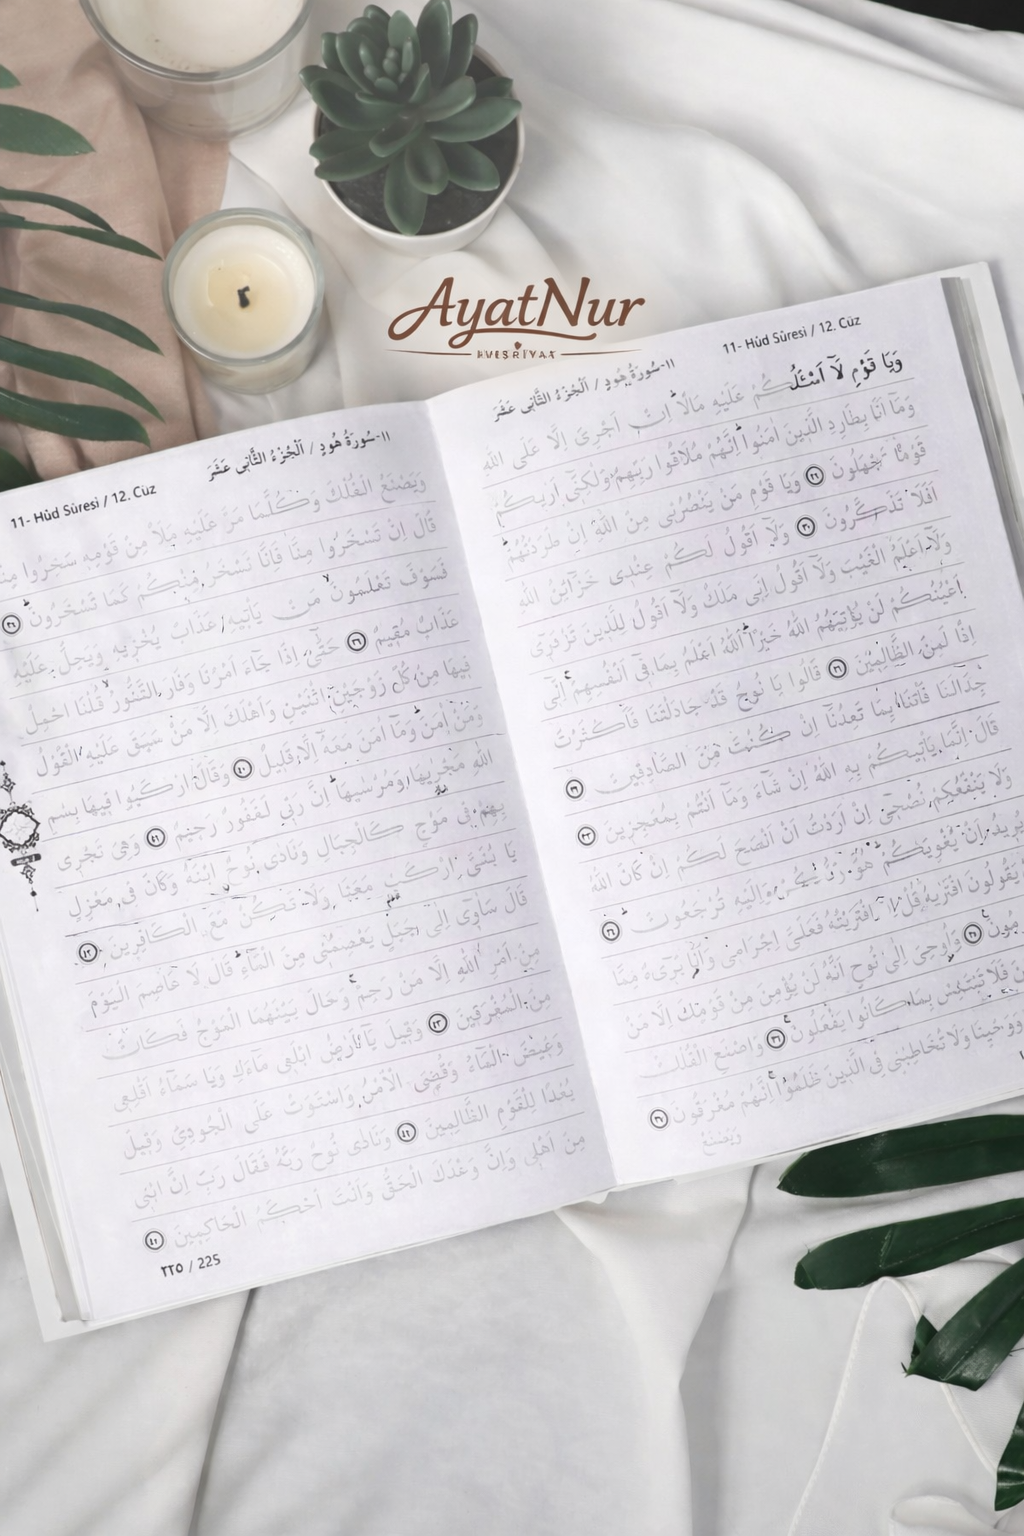 AyatNur
11- Hûd Sûresi / 12. Cüz
١١-سُورَةُ هُودٍ / اَلْجُزْءُ الثَّانِى عَشَرَ
وَيَا قَوْمِ لَآ اَسْئَلُكُمْ عَلَيْهِ مَالًا اِنْ اَجْرِىَ اِلَّا عَلَى اللهِ
وَمَا اَنَا بِطَارِدِ الَّذِينَ اٰمَنُوا اِنَّهُمْ مُلَاقُوا رَبِّهِمْ وَلٰكِنِّى اَرٰيكُمْ
قَوْمًا تَجْهَلُونَ ٢٩ وَيَا قَوْمِ مَنْ يَنْصُرُنِى مِنَ اللهِ اِنْ طَرَدْتُهُمْ
اَفَلَا تَذَكَّرُونَ ٣٠ وَلَآ اَقُولُ لَكُمْ عِنْدِى خَزَآئِنُ اللهِ
وَلَآ اَعْلَمُ الْغَيْبَ وَلَآ اَقُولُ اِنِّى مَلَكٌ وَلَآ اَقُولُ لِلَّذِينَ تَزْدَرِى
اَعْيُنُكُمْ لَنْ يُؤْتِيَهُمُ اللهُ خَيْرًا اَللهُ اَعْلَمُ بِمَا فِى اَنْفُسِهِمْ اِنِّى
اِذًا لَمِنَ الظَّالِمِينَ ٣١ قَالُوا يَا نُوحُ قَدْ جَادَلْتَنَا فَاَكْثَرْتَ
جِدَالَنَا فَأْتِنَا بِمَا تَعِدُنَآ اِنْ كُنْتَ مِنَ الصَّادِقِينَ ٣٢
قَالَ اِنَّمَا يَأْتِيكُمْ بِهِ اللهُ اِنْ شَآءَ وَمَآ اَنْتُمْ بِمُعْجِزِينَ ٣٣
وَلَا يَنْفَعُكُمْ نُصْحِى اِنْ اَرَدْتُ اَنْ اَنْصَحَ لَكُمْ اِنْ كَانَ اللهُ
يُرِيدُ اَنْ يُغْوِيَكُمْ هُوَ رَبُّكُمْ وَاِلَيْهِ تُرْجَعُونَ ٣٤
يَقُولُونَ افْتَرٰيهُ قُلْ اِنِ افْتَرَيْتُهُ فَعَلَىَّ اِجْرَامِى وَاَنَا۬ بَرِىءٌ مِمَّا
٣٥ وَاُوحِىَ اِلٰى نُوحٍ اَنَّهُ لَنْ يُؤْمِنَ مِنْ قَوْمِكَ اِلَّا مَنْ
فَلَا تَبْتَئِسْ بِمَا كَانُوا يَفْعَلُونَ ٣٦ وَاصْنَعِ الْفُلْكَ
وَوَحْيِنَا وَلَا تُخَاطِبْنِى فِى الَّذِينَ ظَلَمُوا اِنَّهُمْ مُغْرَقُونَ ٣٧
وَيَصْنَعُ
١١-سُورَةُ هُودٍ / اَلْجُزْءُ الثَّانِى عَشَرَ
11- Hûd Sûresi / 12. Cüz
وَيَصْنَعُ الْفُلْكَ وَكُلَّمَا مَرَّ عَلَيْهِ مَلَأٌ مِنْ قَوْمِهِ سَخِرُوا مِنْهُ
قَالَ اِنْ تَسْخَرُوا مِنَّا فَاِنَّا نَسْخَرُ مِنْكُمْ كَمَا تَسْخَرُونَ ٣٨
فَسَوْفَ تَعْلَمُونَ مَنْ يَأْتِيهِ عَذَابٌ يُخْزِيهِ وَيَحِلُّ عَلَيْهِ
عَذَابٌ مُقِيمٌ ٣٩ حَتّٰى اِذَا جَآءَ اَمْرُنَا وَفَارَ التَّنُّورُ قُلْنَا احْمِلْ
فِيهَا مِنْ كُلٍّ زَوْجَيْنِ اثْنَيْنِ وَاَهْلَكَ اِلَّا مَنْ سَبَقَ عَلَيْهِ الْقَوْلُ
وَمَنْ اٰمَنَ وَمَآ اٰمَنَ مَعَهُ اِلَّا قَلِيلٌ ٤٠ وَقَالَ ارْكَبُوا فِيهَا بِسْمِ
اللهِ مَجْرٰيهَا وَمُرْسٰيهَا اِنَّ رَبِّى لَغَفُورٌ رَحِيمٌ ٤١ وَهِىَ تَجْرِى
بِهِمْ فِى مَوْجٍ كَالْجِبَالِ وَنَادٰى نُوحٌ ابْنَهُ وَكَانَ فِى مَعْزِلٍ
يَا بُنَىَّ ارْكَبْ مَعَنَا وَلَا تَكُنْ مَعَ الْكَافِرِينَ ٤٢
قَالَ سَاٰوِى اِلٰى جَبَلٍ يَعْصِمُنِى مِنَ الْمَآءِ قَالَ لَا عَاصِمَ الْيَوْمَ
مِنْ اَمْرِ اللهِ اِلَّا مَنْ رَحِمَ وَحَالَ بَيْنَهُمَا الْمَوْجُ فَكَانَ
مِنَ الْمُغْرَقِينَ ٤٣ وَقِيلَ يَآ اَرْضُ ابْلَعِى مَآءَكِ وَيَا سَمَآءُ اَقْلِعِى
وَغِيضَ الْمَآءُ وَقُضِىَ الْاَمْرُ وَاسْتَوَتْ عَلَى الْجُودِىِّ وَقِيلَ
بُعْدًا لِلْقَوْمِ الظَّالِمِينَ ٤٤ وَنَادٰى نُوحٌ رَبَّهُ فَقَالَ رَبِّ اِنَّ ابْنِى
مِنْ اَهْلِى وَاِنَّ وَعْدَكَ الْحَقُّ وَاَنْتَ اَحْكَمُ الْحَاكِمِينَ ٤٥
٢٢٥ / 225